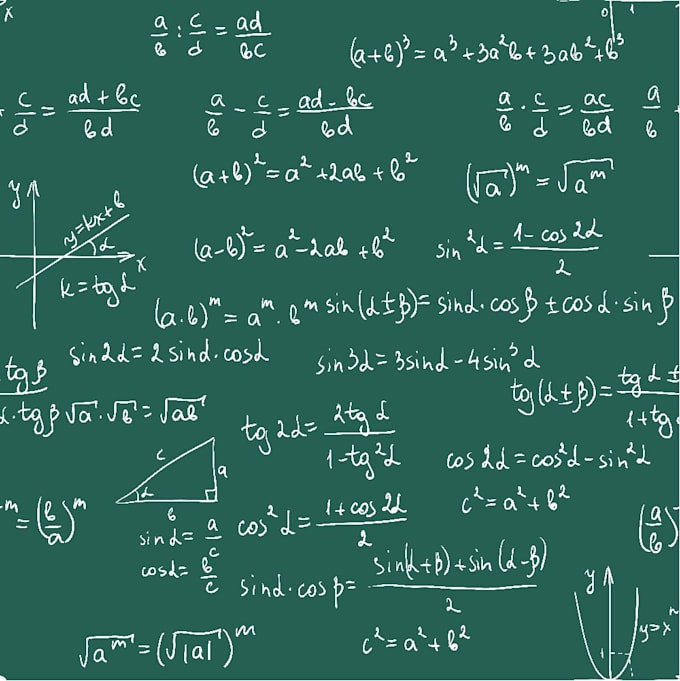 x
a/b : c/d = ad/bc
0 1
(a+b)³ = a³ + 3a²b + 3ab² + b³
+ c/d = ad + bc/bd
a/b - c/d = ad - bc/bd
a/b · c/d = ac/bd
a/b +
(a+b)² = a² + 2ab + b²
(√a)ᵐ = √aᵐ
y
y=kx+b
α
x
k = tg α
(a-b)² = a² - 2ab + b²
sin²α = 1 - cos 2α/2
(a·b)ᵐ = aᵐ · bᵐ
sin(α±β) = sinα · cos β ± cos α · sin β
tg β
α · tg β
sin 2α = 2 sinα · cosα
sin 3α = 3sinα - 4sin³α
tg(α±β) = tg α ±
1 + tg
√a · √b = √ab
tg 2α = 2tg α/1 - tg²α
cos 2α = cos²α - sin²α
c² = a² + b²
c
a
α
b
-m = (b/a)ᵐ
sin α = a/c
cosα = b/c
cos²α = 1 + cos 2α/2
(a/b)
sinα · cos β = sin(α+β) + sin(α-β)/2
√aᵐ = (√|a|)ᵐ
c² = a² + b²
y
1
y=xⁿ